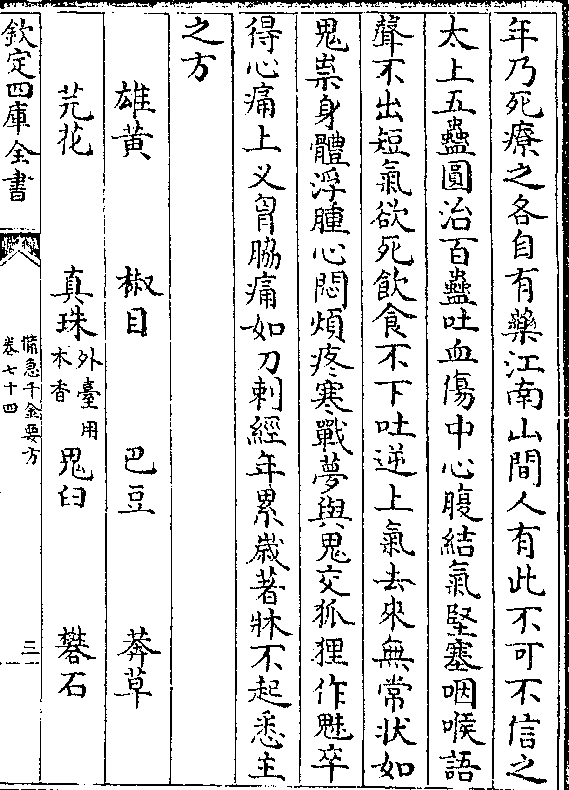 年乃死療之各自有藥江南山間人有此不可不信之
太上五蠱圓治百蠱吐血傷中心腹結氣堅塞咽喉語
聲不出短氣欲死飲食不下吐逆上氣去來無常状如
鬼祟身體浮腫心悶煩疼寒戰夢與鬼交狐狸作魅卒
得心痛上义胷脇痛如刀刺經年累嵗著牀不起悉主
之方
雄黄 椒目 巴豆 莽草
芫花 真珠外臺用木香 鬼臼 礬石
欽定四庫全書
備急千金要方
卷七十四
三